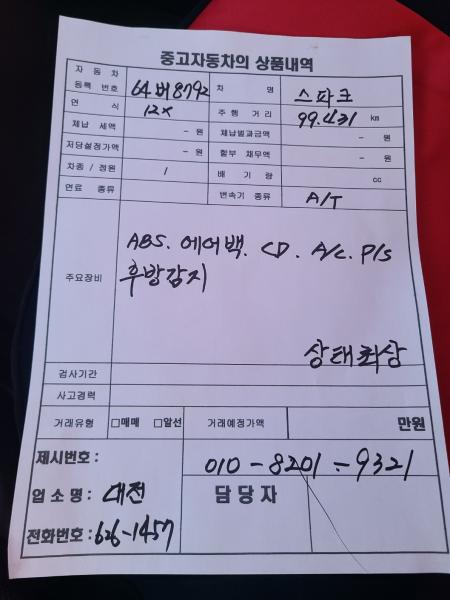 중고자동차의 상품내역
자동차 등록 번호 64버8792 차 명 스파크
연 식 12x 주행 거리 99.431 km
체납 세액 - 원 체납벌과금액 - 원
저당설정가액 - 원 할부 채무액 - 원
차종 / 정원 / 배 기 량 cc
연료 종류 변속기 종류 A/T
주요장비 ABS. 에어백. CD. A/C. P/S
후방감지
상태최상
검사기간
사고경력
거래유형 □매매 □알선 거래예정가액 만원
제시번호 : 010-8201-9321
업 소 명 : 대전 담당자
전화번호 : 626-1457